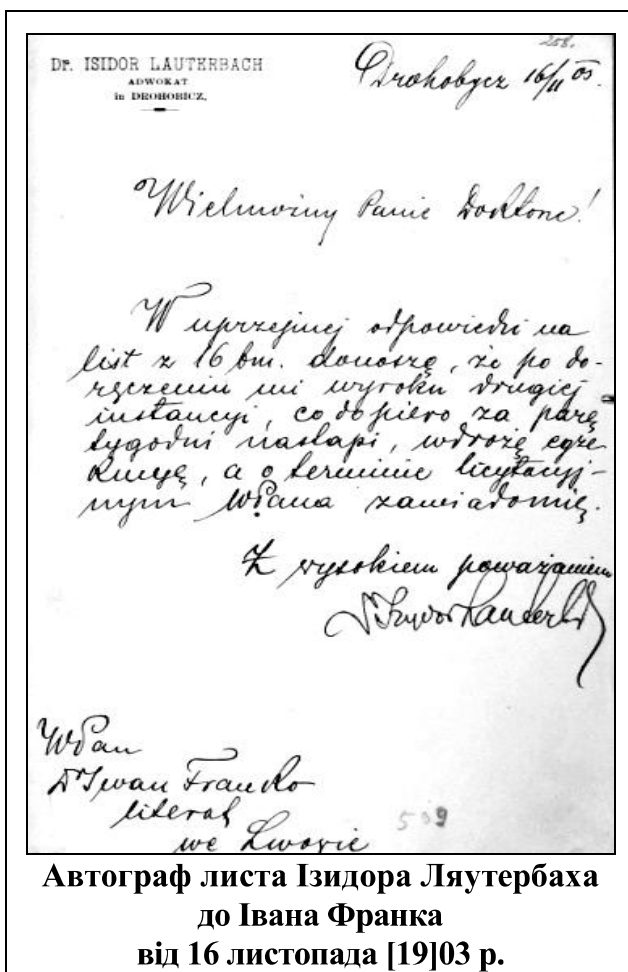 258.
Dr. ISIDOR LAUTERBACH
ADWOKAT
in DROHOBICZ,
Drohobycz 16/11 03.
Wielmożny Panie Doktorze!
W uprzejmej odpowiedzi na
list z 16 bm. donoszę, że po do-
ręczeniu mi wyroku drugiej
instancyi, co dopiero za parę
tygodni nastąpi, wdrożę egze
kucyę, a o terminie licytacyj-
nym WPana zawiadomię.
Z wysokiem poważaniem
Dr Izydor Lauterbach
WPan
Dr Iwan Franko
literat
we Lwowie
509
Автограф листа Ізидора Ляутербаха
до Івана Франка
від 16 листопада [19]03 р.